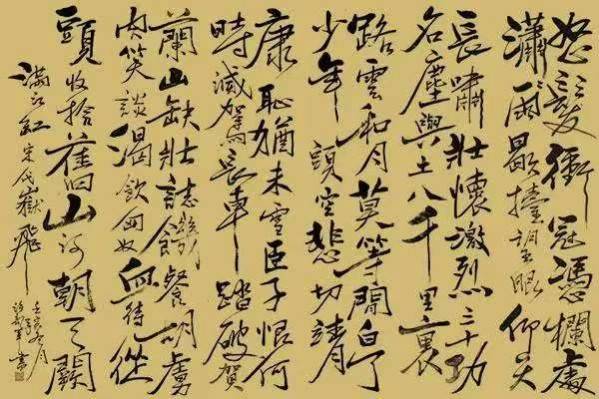 怒髮衝冠憑欄處
瀟〻雨歇擡望眼仰天
長嘯壯懷激烈三十功
名塵與土八千里裏
路雲和月莫等閒白了
少年頭空悲切靖
康恥猶未雪臣子恨何
時滅駕長車踏破賀
蘭山缺壯誌饑餐胡虜
肉笑談渴飲匈奴血待從
頭收拾舊山河朝天闕
滿江紅宋代嶽飛